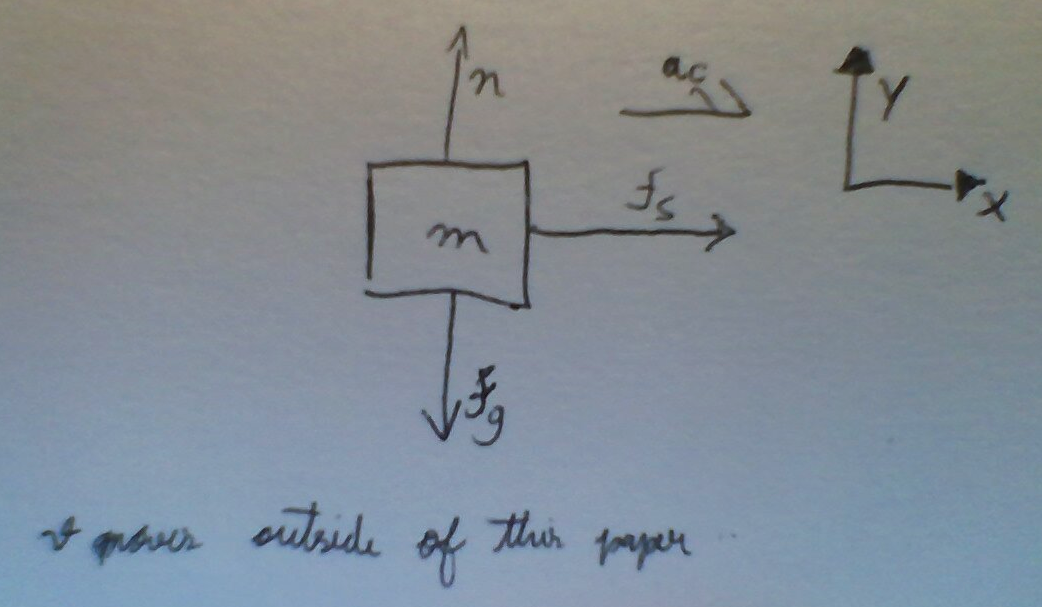 n
ac
Y
fs
X
m
Fg
v moves outside of this paper